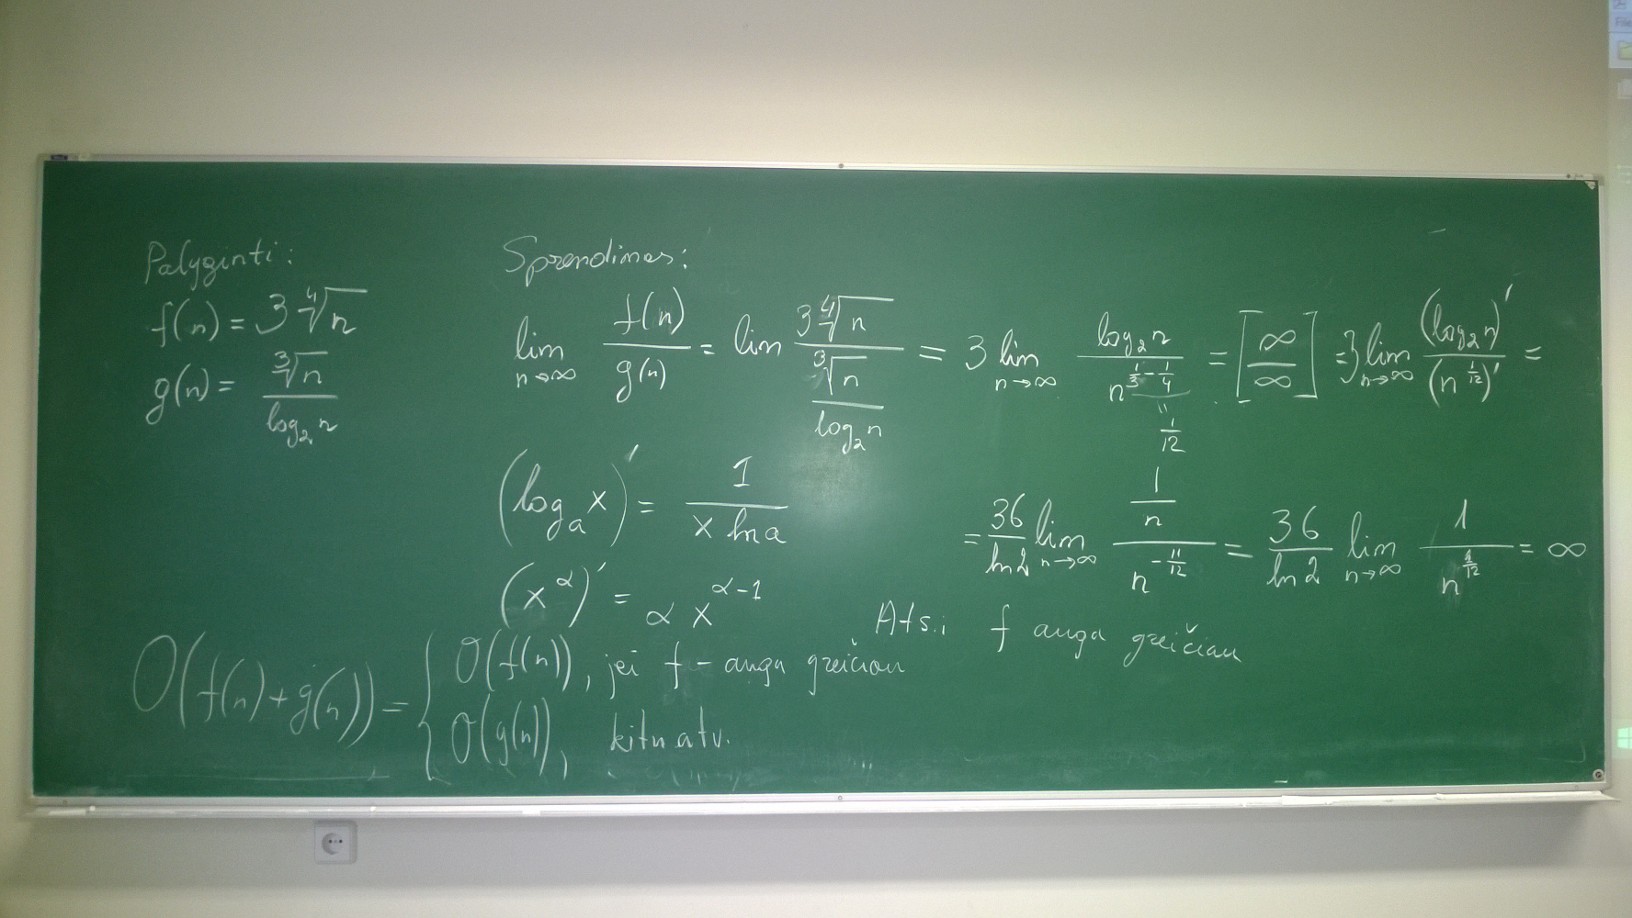 Palyginti:
f(n) = 3 ∜n
g(n) = ∛n / log₂n
Sprendimas:
lim n→∞ f(n) / g(n) = lim 3∜n / (∛n / log₂n) = 3 lim n→∞ log₂n / n^(1/3 - 1/4) = [∞/∞] = 3 lim n→∞ (log₂n)' / (n^(1/12))' =
" 1/12
(logₐx)' = 1 / (x ln a)
= 36/ln2 lim n→∞ (1/n) / n^(-11/12) = 36/ln2 lim n→∞ 1 / n^(1/12) = ∞
(x^α)' = α x^(α-1)
Ats.: f auga greičiau
O(f(n) + g(n)) = { O(f(n)), jei f - auga greičiau
O(g(n)), kitu atv.